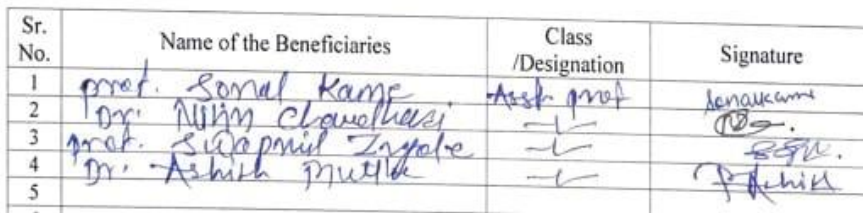 Sr. No. Name of the Beneficiaries Class /Designation Signature
1 prof. Sonal Kame Asst prof Sonalkame
2 Dr. Nitin Chaudhari
3 prof. Swapnil Ingole
4 Dr. Ashish
5